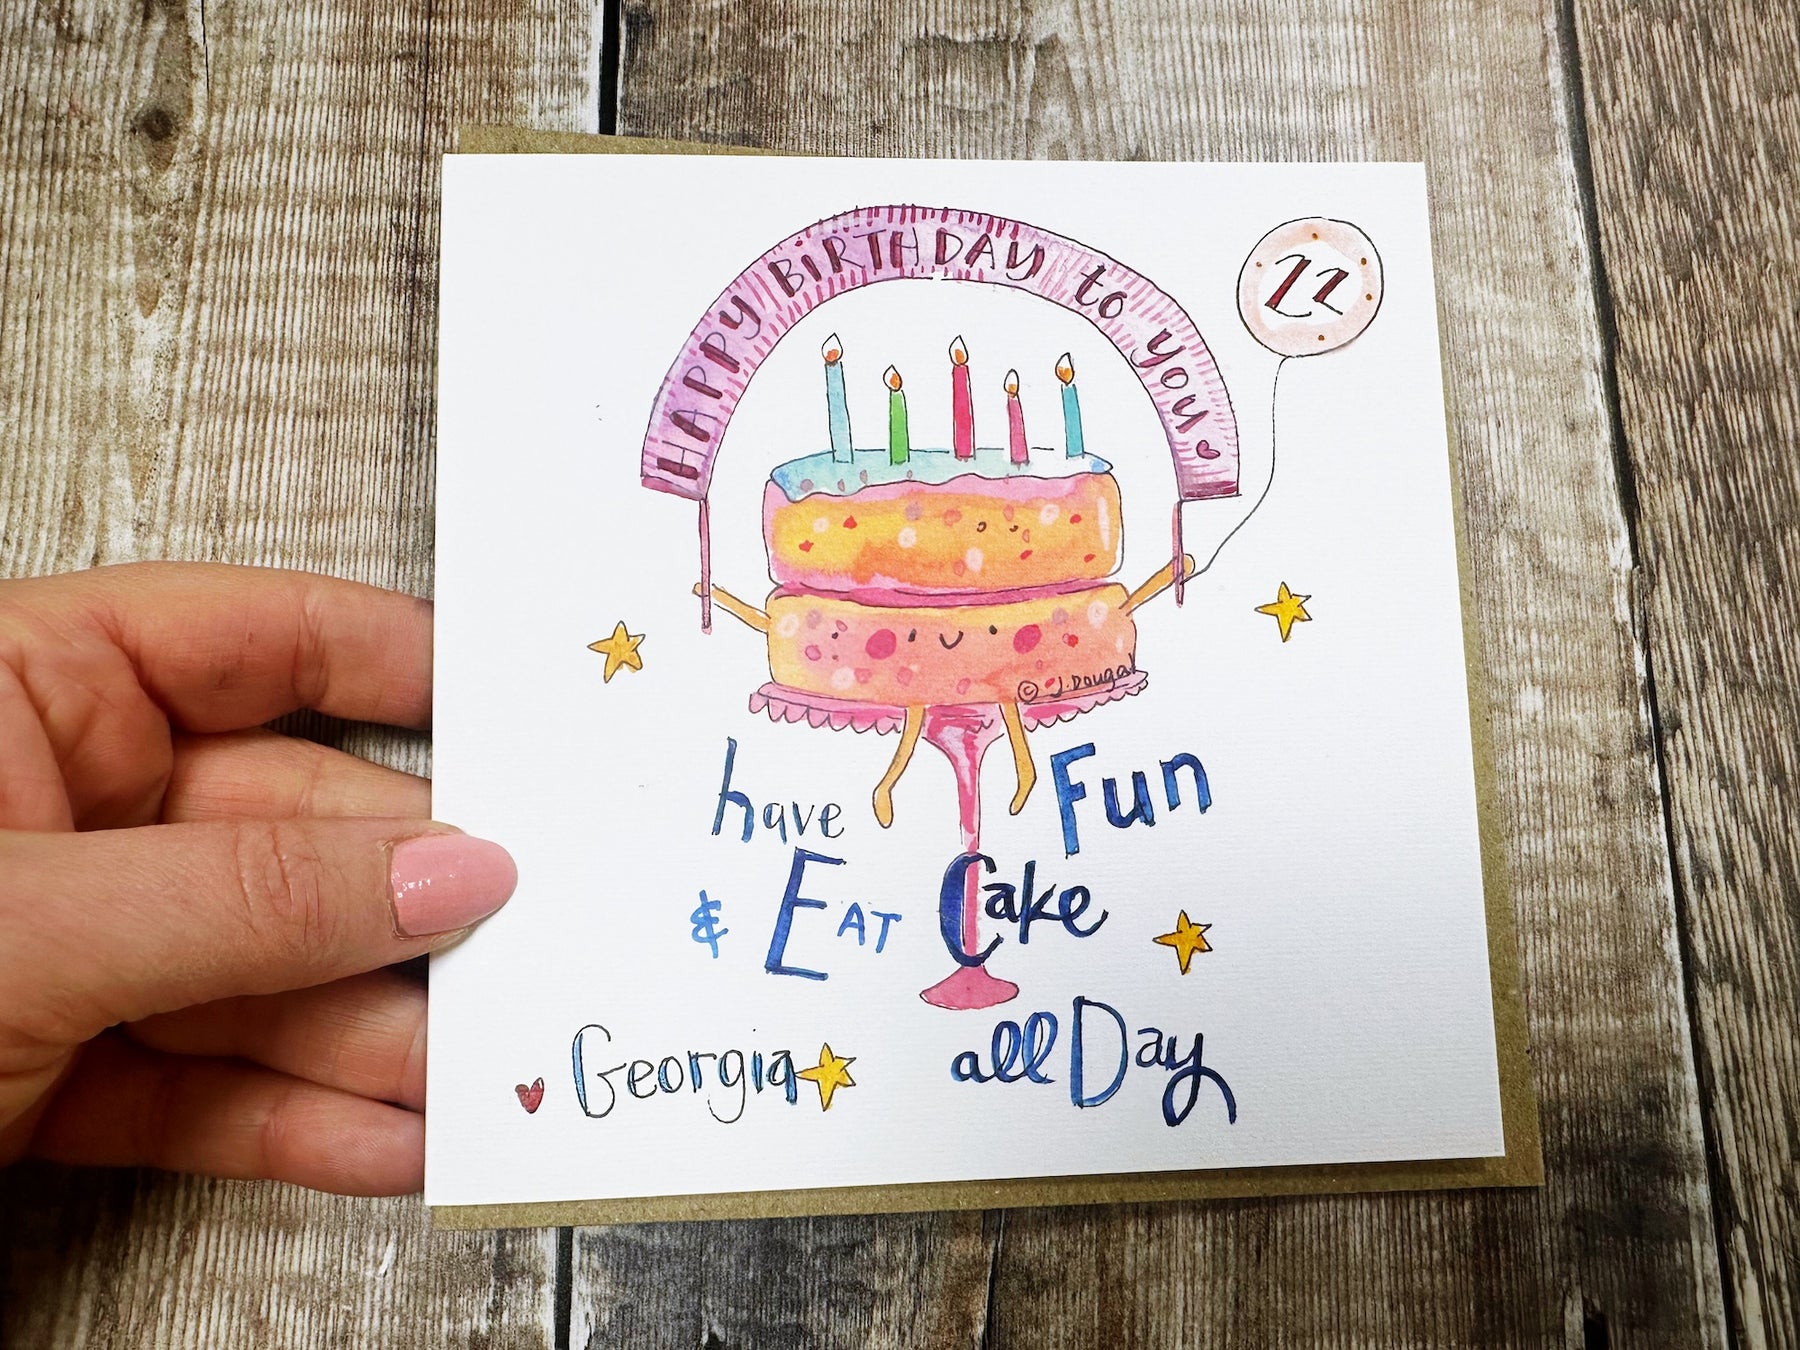 HAPPY BIRTHDAY to you
22
© J. Dougal
have Fun
& EAT Cake
Georgia all Day